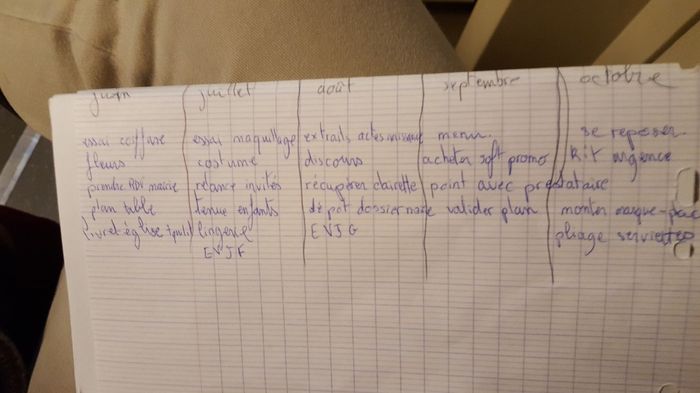 juin juillet août septembre octobre
essai coiffure essai maquillage extraits actes naissance menu. se reposer
fleurs costume discours acheter soft promo kit urgence
prendre RDV mairie relance invités récupérer clairette point avec prestataire
plan table tenue enfants dépot dossier mairie valider plan monter marque-place
livret église lingerie EVJG pliage serviettes
EVJF